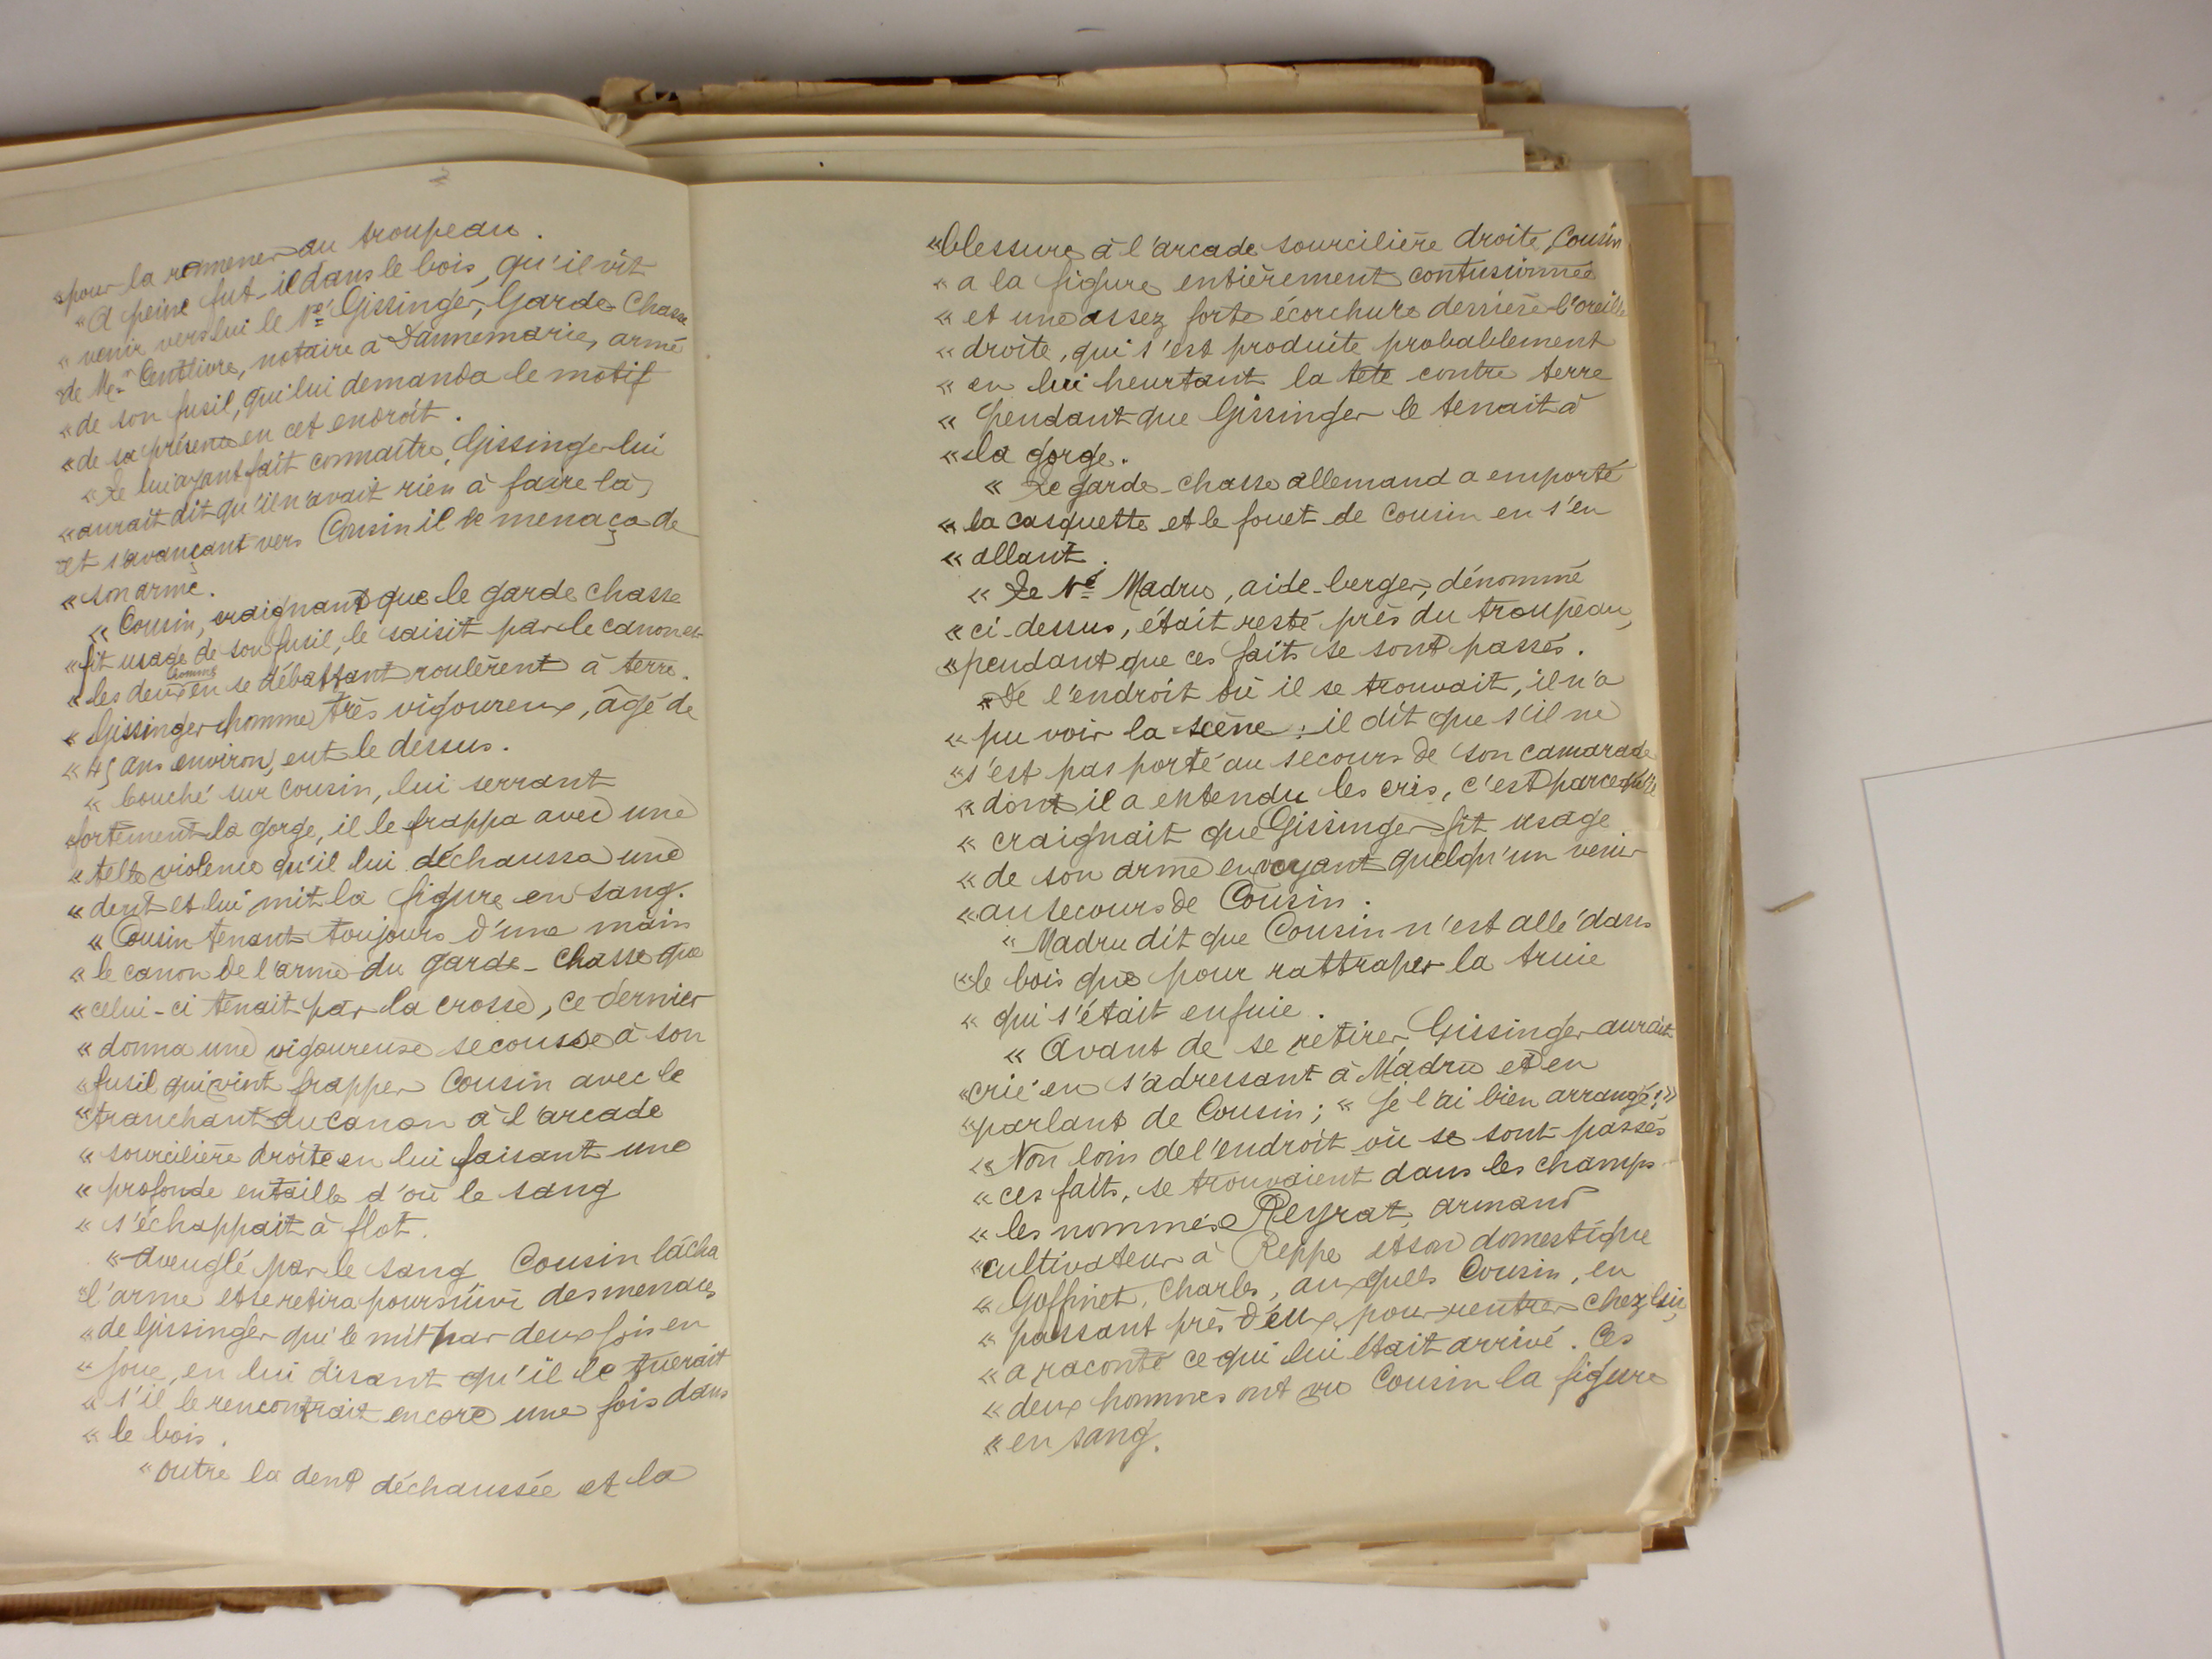 « pour la ramener au troupeau.
« A peine fut-il dans le bois, qu'il vit
« venir vers lui le Né Gissinger, Garde-Chasse
de Me Centlivre, notaire à Dannemarie, armé
« de son fusil, qui lui demanda le motif
« de sa présence en cet endroit.
« Le lui ayant fait connaitre, Gissinger lui
« aurait dit qu'il n'avait rien à faire là,
et s'avançant vers Cousin il le menaça de
« son arme.
« Cousin, craignant que le garde chasse
« fit usage de son fusil, le saisit par le canon et
« les deux hommes en se débattant roulèrent à terre.
« Gissinger homme très vigoureux, âgé de
« 45 ans environ, eut le dessus.
« Couché sur Cousin, lui serrant
« fortement la gorge, il le frappa avec une
« telle violence qu'il lui déchaussa une
« dent et lui mit la figure en sang.
« Cousin tenant toujours d'une main
« le canon de l'arme du garde-chasse que
« celui-ci tenait par la crosse, ce dernier
« donna une vigoureuse secousse à son
« fusil qui vint frapper Cousin avec le
« tranchant du canon à l'arcade
« sourcilière droite en lui faisant une
« profonde entaille d'où le sang
« s'échappait à flot.
« Aveuglé par le sang Cousin lâcha
« l'arme et se retira poursuivi des menaces
« de Gissinger qui le mit par deux fois en
« joue, en lui disant qu'il le tuerait
« s'il le rencontrait encore une fois dans
« le bois.
« Outre la dent déchaussée et la
« blessure à l'arcade sourcilière droite, Cousin
« a la figure entièrement contusionnée
« et une assez forte écorchure derrière l'oreille
« droite, qui s'est produite probablement
« en lui heurtant la tête contre terre
« pendant que Gissinger le tenait à
« la gorge.
« Le garde-chasse allemand a emporté
« la casquette et le fouet de Cousin en s'en
« allant.
« Le Né Madru, aide-berger, dénommé
« ci-dessus, était resté près du troupeau,
« pendant que ces faits se sont passés.
« De l'endroit où il se trouvait, il n'a
« pu voir la scène ; il dit que s'il ne
« s'est pas porté au secours de son camarade
« dont il a entendu les cris, c'est parcequ'il
« craignait que Gissinger fit usage
« de son arme en voyant quelqu'un venir
« au secours de Cousin.
« Madru dit que Cousin n'est allé dans
« le bois que pour rattraper la truie
« qui s'était enfuie.
« Avant de se retirer, Gissinger aurait
« crié en s'adressant à Madru et en
« parlant de Cousin ; « je l'ai bien arrangé ! »
« Non loin de l'endroit où se sont passés
« ces faits, se trouvaient dans les champs
« les nommés Reyrat, armand
« cultivateur à Reppe et son domestique
« Goffinet, Charles, auxquels Cousin, en
« passant près d'eux, pour rentrer chez lui,
« a raconté ce qui lui était arrivé. Ces
« deux hommes ont vu Cousin la figure
« en sang.